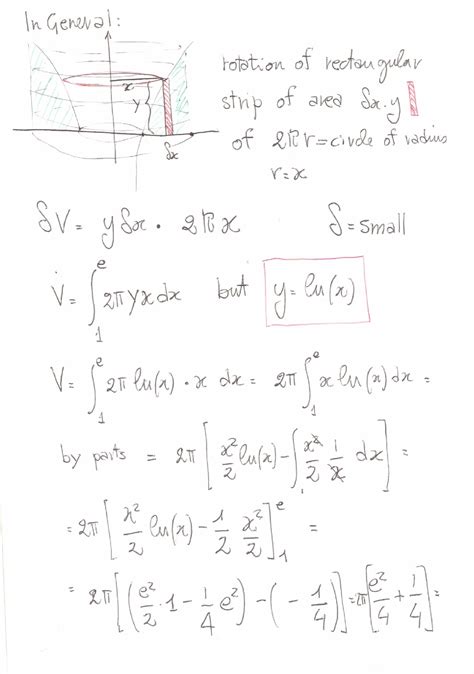 In General:
x
y
δx
rotation of rectangular
strip of area δx·y
of 2πr=circle of radius
r=x
δV= yδx · 2πx δ=small
V= ∫₁ᵉ 2πyxdx but y=ln(x)
V= ∫₁ᵉ 2πln(x)·x dx= 2π∫₁ᵉ xln(x)dx=
by parts = 2π[x²/2 ln(x)-∫x²/2 1/x dx]=
=2π[x²/2 ln(x)-1/2 x²/2]₁ᵉ =
= 2π[(e²/2·1-1/4 e²)-(-1/4)]=2π[e²/4+1/4]=